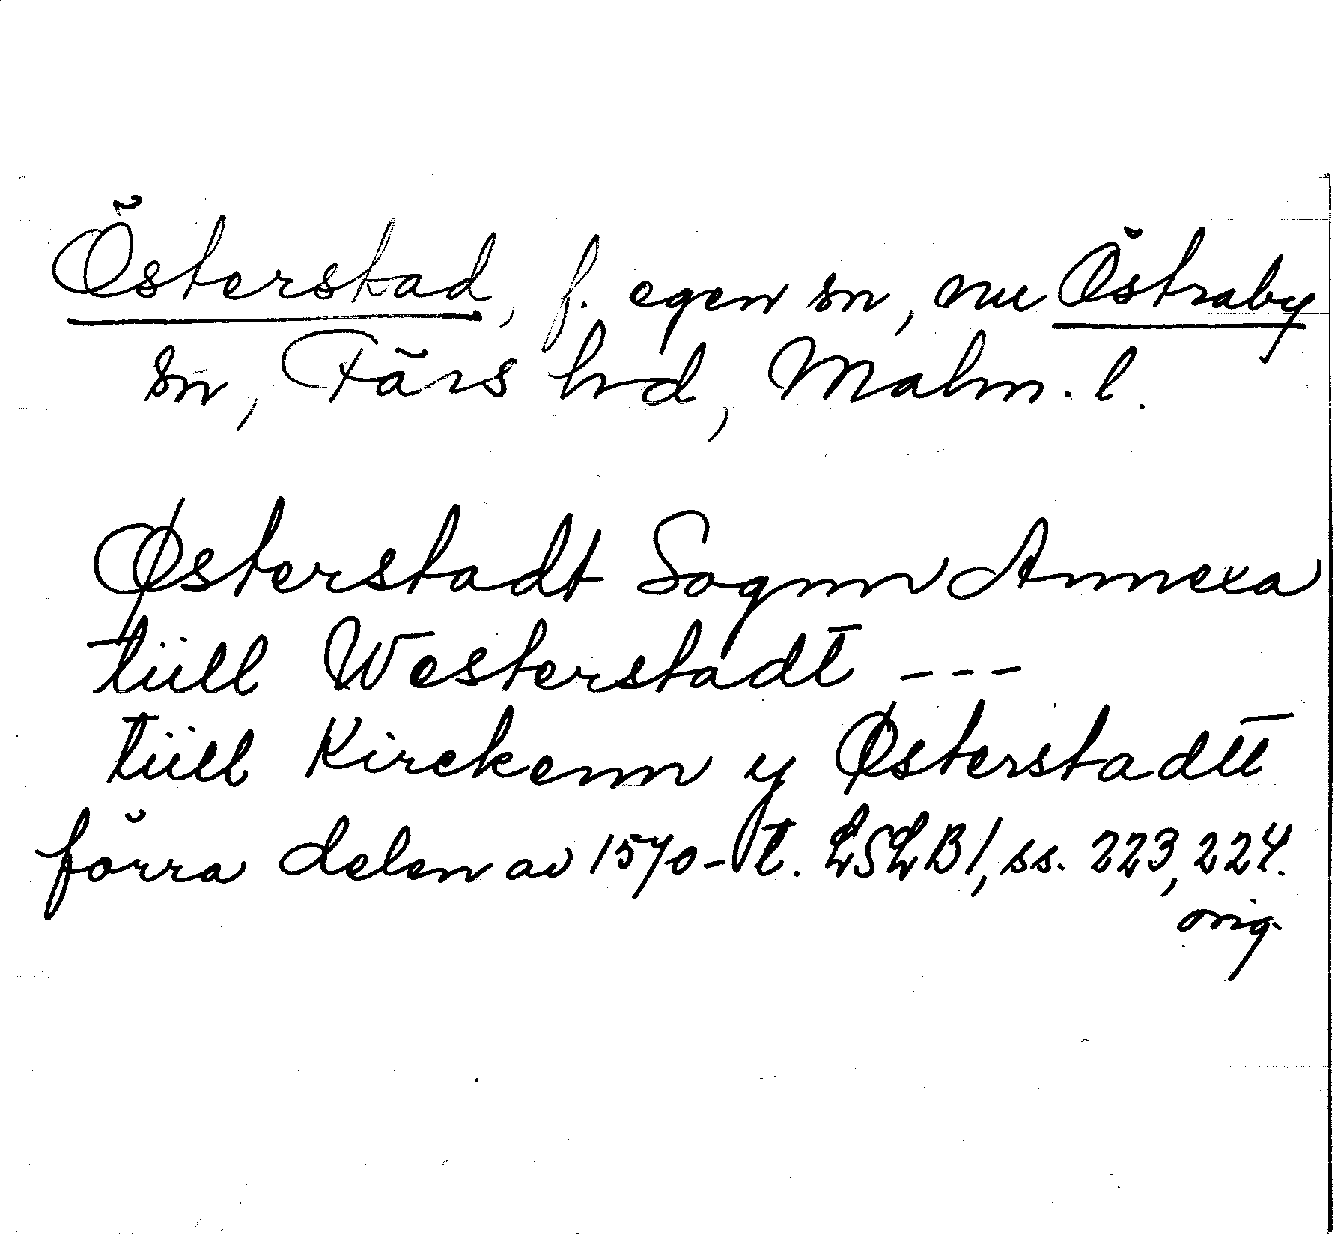 Österstad, f. egen sn, nu Östraby
sn, Färs hd, Malm. l.
Østerstadt Sognn Annexa
tüll Westerstadt ---
tüll Kirckenn y Østerstadtt
förra delen av 1570-t. LSLB1, ss. 223, 224.
orig.